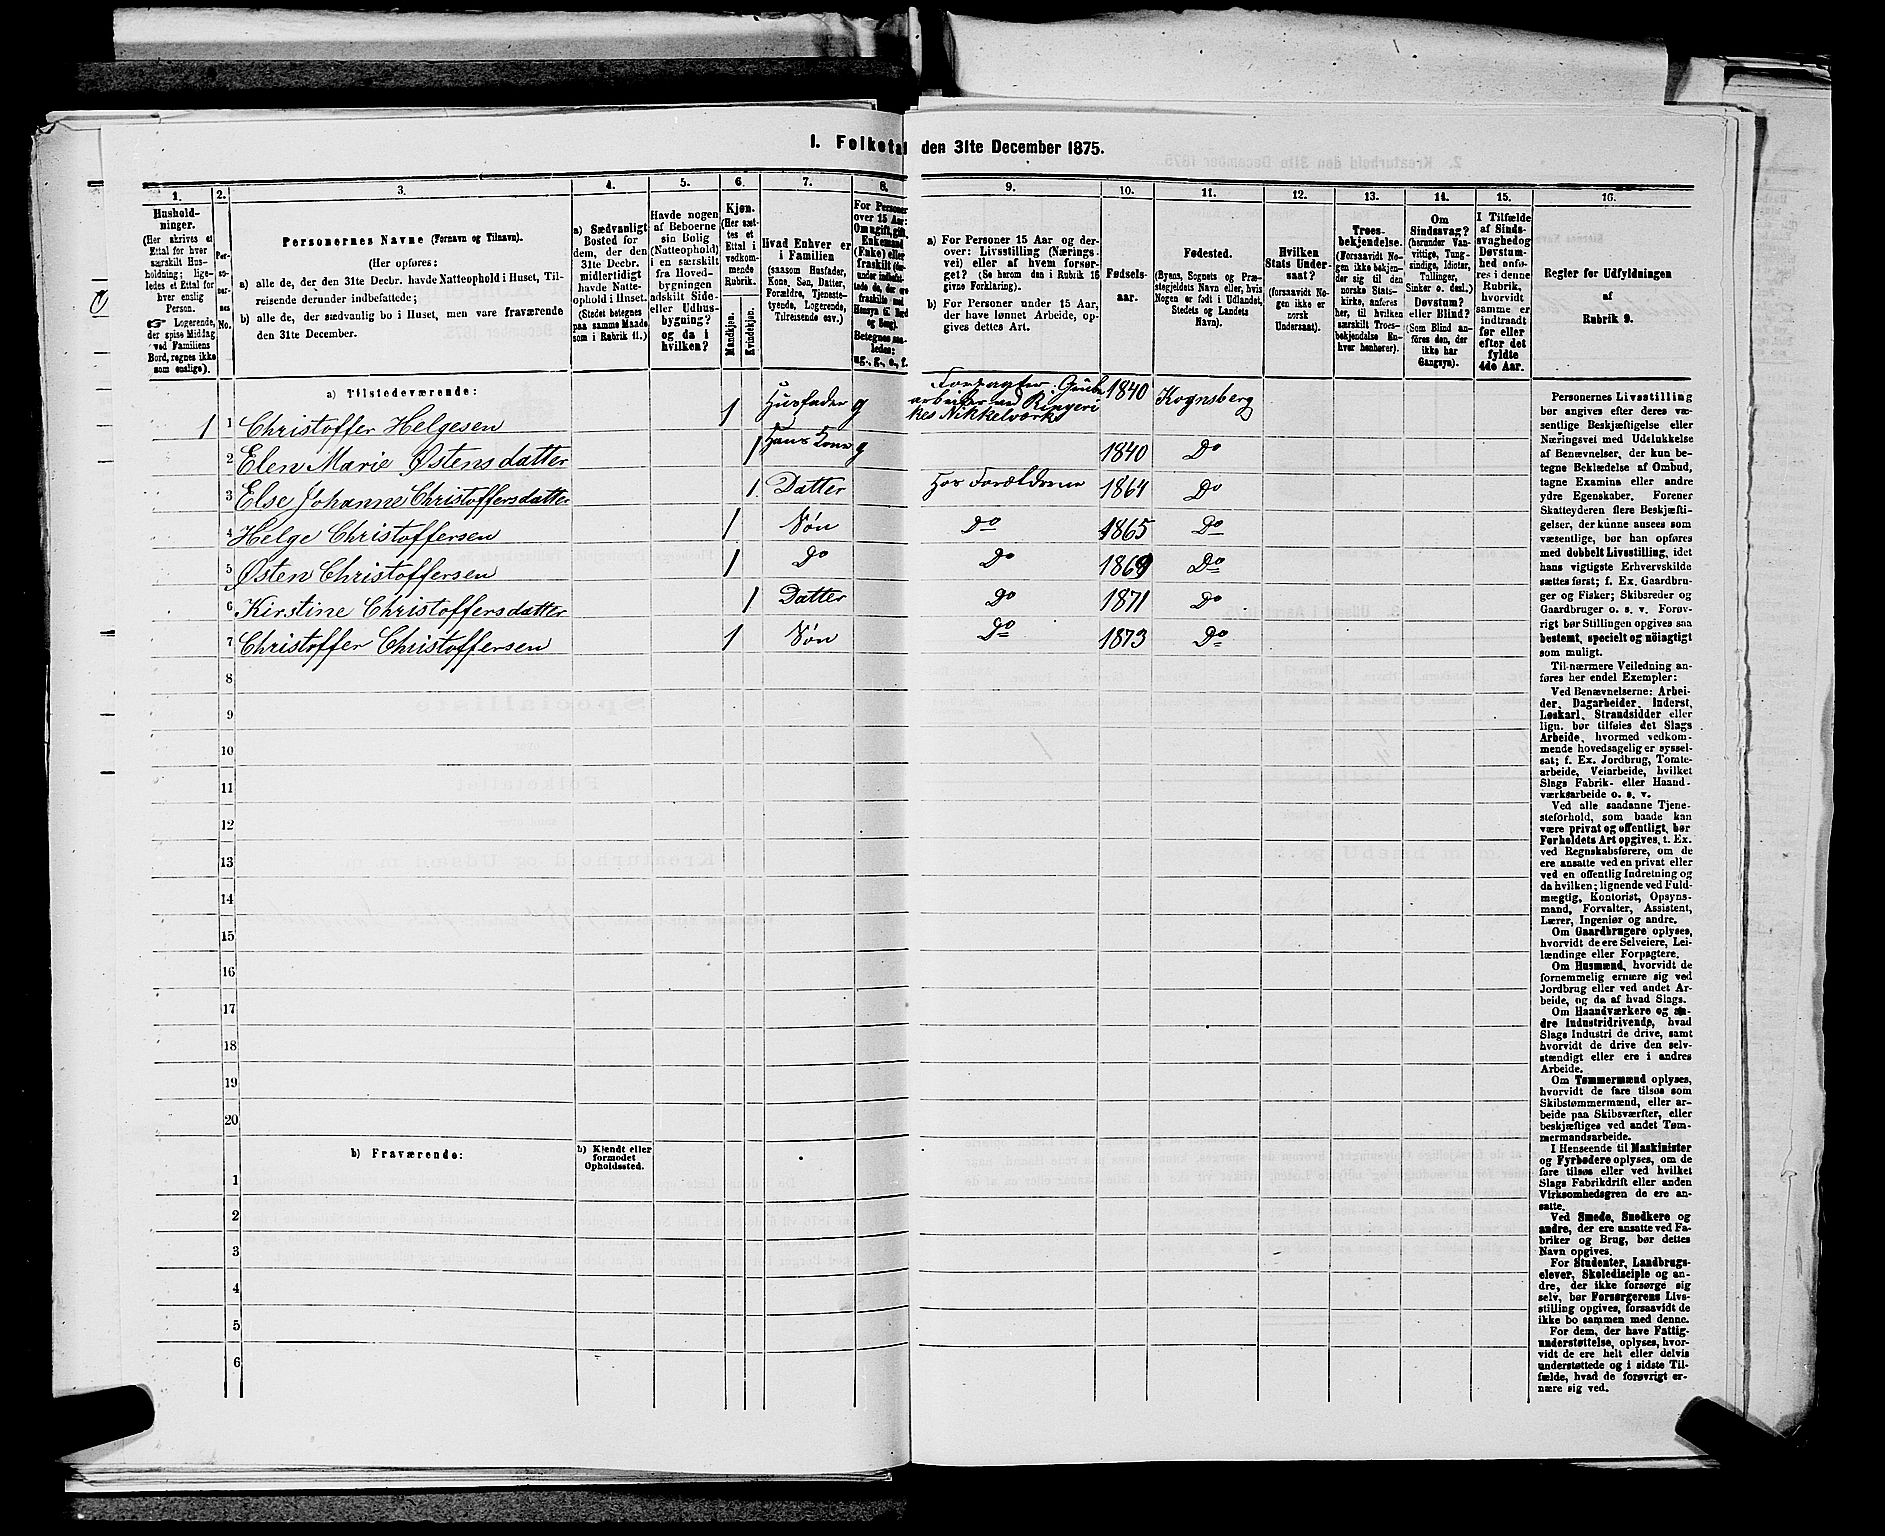 1. Folketal den 31te December 1875.
1.
2.
3.
4.
5.
6.
7.
8.
9.
10.
11.
12.
13.
14.
15.
16.
Husholdninger.
(Her skrives et
Ettal for hver
særskilt Husholdning;
ligeledes et Ettal for
hver enslig
Person.
☞ Logerende,
der spise Middag
ved Familiens
Bord, regnes ikke
som enslige).
Personernes No.
Personernes Navne (Fornavn og Tilnavn).
(Her opføres:
a) alle de, der den 31te Decbr. havde Natteophold i Huset, Tilreisende derunder indbefattede;
b) alle de, der sædvanlig bo i Huset, men vare fraværende
den 31te December.
a) Sædvanligt
Bosted for
dem, der den
31te Decbr.
midlertidigt
havde Natteophold i Huset.
(Stedet betegnes
paa samme Maade
som i Rubrik 11.)
Havde nogen
af Beboerne
sin Bolig
(Natteophold)
i en særskilt
fra Hovedbygningen
adskilt Side-
eller Udhusbygning?
og da i
hvilken?
Kjøn.
(Her sættes et
Ettal i
vedkommende
Rubrik.
Mandkjøn.
Kvindekjøn.
Hvad Enhver er
i Familien
(saasom Husfader,
Kone, Søn, Datter,
Forældre, Tjenestetyende, Logerende,
Tilreisende osv.)
For Personer
over 15 Aar:
Om ugift, gift,
Enkemand
(Enke) eller
fraskilt
Betegnes saaledes:
ug., g., e., f.
a) For Personer 15 Aar og derover: Livsstilling (Næringsvei) eller af hvem forsørget? (Se herom den i Rubrik 16
givne Forklaring).
b) For Personer under 15 Aar,
der have lønnet Arbeide, opgives dettes Art.
Fødselsaar.
Fødested.
(Byens, Sognets og Præstegjeldets Navn eller, hvis
Nogen er født i Udlandet,
Stedets og Landets
Navn).
Hvilken
Stats Undersaat?
(forsaavidt Nogen ikke er
norsk
Undersaat).
Troesbekjendelse.
(Forsaavidt Nogen ikke bekjender sig til den
norske Statskirke, anføres
her, til hvilken
særskilt Troesbekjendelse Enhver henhører).
Om
Sindssvag?
(herunder Vanvittige, Tungsindige, Idioter,
Tullinger,
Sinker o. desl.)
Døvstum?
eller Blind?
(Som Blind anføres den, der
ikke har
Gangsyn).
I Tilfælde
af Sindssvaghed og
Døvstumhed anføres i denne
Rubrik,
hvorvidt
samme er
indtraadt
før eller
efter det
fyldte
4de Aar.
Regler for Udfyldningen
af
Rubrik 9.
a) Tilstedeværende:
1 1 Christoffer Helgesen 1 Husfader g Forpagter. Grubearbeider ved Ringerikes Nikkelværk 1840 Kognsberg
2 Elen Marie Østensdatter 1 Hans Kone g 1840 Do
3 Else Johanne Christoffersdatter 1 Datter Hos Forældrene 1864 Do
4 Helge Christoffersen 1 Søn Do 1865 Do
5 Østen Christoffersen 1 Do Do 1869 Do
6 Kirstine Christoffersdatter 1 Datter Do 1871 Do
7 Christoffer Christoffersen 1 Søn Do 1873 Do
8
9
10
11
12
13
14
15
16
17
18
19
20
b) Fraværende:
b) Kjendt eller
formodet
Opholdssted.
1
2
3
4
5
6
Personernes Livsstilling
bør angives efter deres væsentlige Beskjæftigelse eller
Næringsvei med Udelukkelse
af Benævnelser, der kun betegne Beklædelse af Ombud,
tagne Examina eller andre
ydre Egenskaber. Forener
Skatteyderen flere Beskjæftigelser, der kunne ansees som
væsentlige, bør han opføres
med dobbelt Livsstilling, idet
hans vigtigste Erhvervskilde
sættes først; f. Ex. Gaardbruger og Fisker; Skibsreder og
Gaardbruger o. s. v. Forøvrigt bør Stillingen opgives saa
bestemt, specielt og nöiagtigt
som muligt.
Til nærmere Veiledning anføres her endel Exempler:
Ved Benævnelserne: Arbeider, Dagarbeider, Inderst,
Løskarl, Strandsidder eller
lign. bør tilføies det Slags
Arbeide, hvormed vedkommende hovedsagelig er sysselsat; f. Ex. Jordbrug, Tomtearbeide, Veiarbeide, hvilket
Slags Fabrik- eller Haandværksarbeide o. s. v.
Ved alle saadanne Tjenesteforhold, som baade kan
være privat og offentligt, bør
Forholdets Art opgives, t. Ex.
ved Regnskabsførere, om de
ere ansatte ved en privat eller
ved en offentlig Indretning og
da hvilken; lignende ved Fuldmægtig, Kontorist, Opsynsmand, Forvalter, Assistent,
Lærer, Ingeniør og andre.
Om Gaardbrugere oplyses,
hvorvidt de ere Selveiere, Leilændinge eller Forpagtere.
Om Husmænd, hvorvidt de
fornemmelig ernære sig ved
Jordbrug eller ved andet Arbeide, og da af hvad Slags.
Om Haandværkere og andre Industridrivende, hvad
Slags Industri de drive, samt
hvorvidt de drive den selvstændigt eller ere i andres
Arbeide.
Om Tømmermænd oplyses,
hvorvidt de fare tilsøs som
Skibstømmermænd, eller arbeide paa Skibsværfter, eller
beskjæftiges ved andet Tømmermandsarbeide.
I Henseende til Maskinister
og Fyrbødere oplyses, om de
fare tilsøs eller ved hvilket
Slags Fabrikdrift eller anden
Virksomhedsgren de ere ansatte.
Ved Smede, Snedkere og
andre, der ere ansatte ved Fabriker og Brug, bør dettes
Navn opgives.
For Studenter, Landbrugselever, Skoledisciple og andre, der ikke forsørge sig
selv, bør Forsørgerens Livsstilling opgives, forsaavidt de
ikke bo sammen med denne.
For dem, der have Fattigunderstøttelse, oplyses, hvorvidt de ere helt eller delvis
understøttede og i sidste Tilfælde, hvad de forøvrigt ernære sig ved.